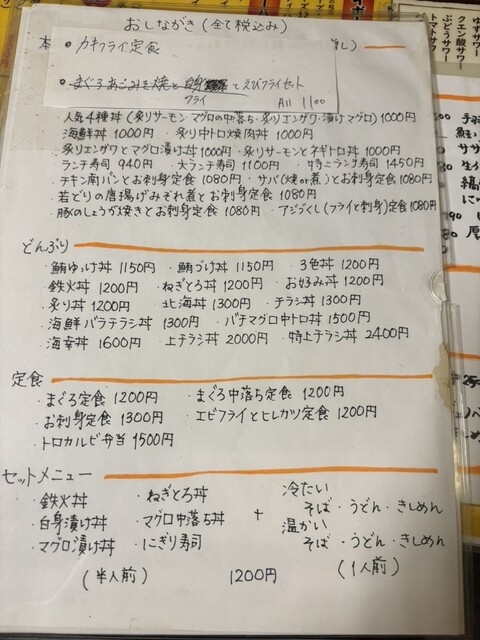 おしながき(全て税込み)
・カキフライ定食
フライ
とえびフライセット
All 1100
・人気4種丼(炙りサーモン・マグロの中落ち・炙りエンガワ・漬けマグロ)1000円
・海鮮丼 1000円 ・炙り中トロ焼肉丼 1000円
・炙りエンガワとマグロ漬け丼 1000円 ・炙りサーモンとネギトロ丼 1000円
・ランチ寿司 940円 ・大ランチ寿司 1100円 ・特上ランチ寿司 1450円
・チキン南バンとお刺身定食 1080円 ・サバ(焼or煮)とお刺身定食 1080円
・若どりの唐揚げみぞれ煮とお刺身定食 1080円
・豚のしょうが焼きとお刺身定食 1080円 ・アジづくし(フライと刺身)定食 1080円
どんぶり
・鮪ゆっけ丼 1150円 ・鮪づけ丼 1150円 ・3色丼 1200円
・鉄火丼 1200円 ・ねぎとろ丼 1200円 ・お好み丼 1200円
・炙り丼 1200円 ・北海丼 1300円 ・チラシ丼 1300円
・海鮮バラテラシ丼 1300円 ・バチマグロ中トロ丼 1500円
・海幸丼 1600円 ・上チラシ丼 2000円 ・特上チラシ丼 2400円
定食
・まぐろ定食 1200円 ・まぐろ中落ち定食 1200円
・お刺身定食 1300円 ・エビフライとヒレカツ定食 1200円
・トロカルビ弁当 1500円
セットメニュー
・鉄火丼 ・ねぎとろ丼
・白身漬け丼 ・マグロ中落ち丼
・マグロ漬け丼 ・にぎり寿司
(半人前)
+
冷たい
そば・うどん・きしめん
温かい
そば・うどん・きしめん
(1人前)
1200円
ゆずサワー
クエン酸サワー
ぶどうサワー
トマトサワー